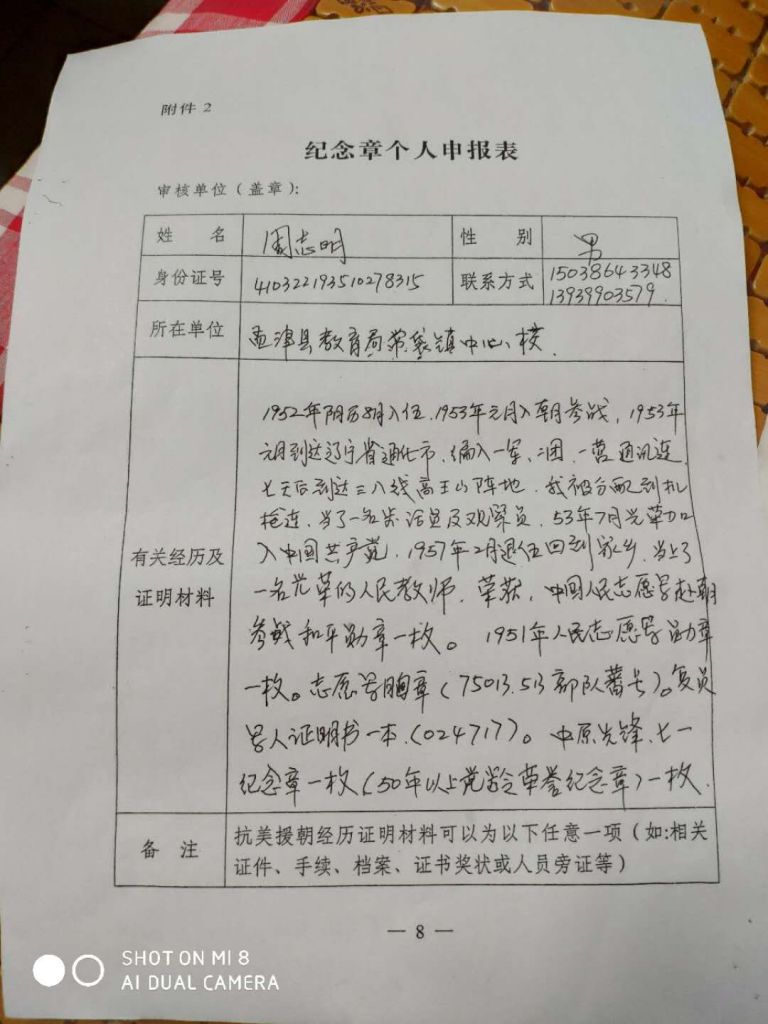 附件 2
纪念章个人申报表
审核单位(盖章):
姓 名 周志明 性 别 男
身份证号 410322193510278315 联系方式 15038643348
13939903579.
所在单位 孟津县教育局常袋镇中心校.
有关经历及
证明材料
1952年阴历8月入伍.1953年元月入朝参战,1953年
元月到达辽宁省通化市.编入一军、二团.一营通讯连.
七天后到达三八线高王山阵地.我被分配到机
抢连.当了一名电话员及观察员.53年7月光荣加
入中国共产党.1957年2月退伍回到家乡.当上了
一名光荣的人民教师.荣获,中国人民志愿军赴朝
参战和平勋章一枚。1951年人民志愿军勋章
一枚。志愿军胸章(75013.513部队番号)。复员
军人证明书一本.(024717)。中原先锋.七一
纪念章一枚(50年以上党龄荣誉纪念章)一枚.
备 注 抗美援朝经历证明材料可以为以下任意一项(如:相关
证件、手续、档案、证书奖状或人员旁证等)
— 8 —
SHOT ON MI 8
AI DUAL CAMERA